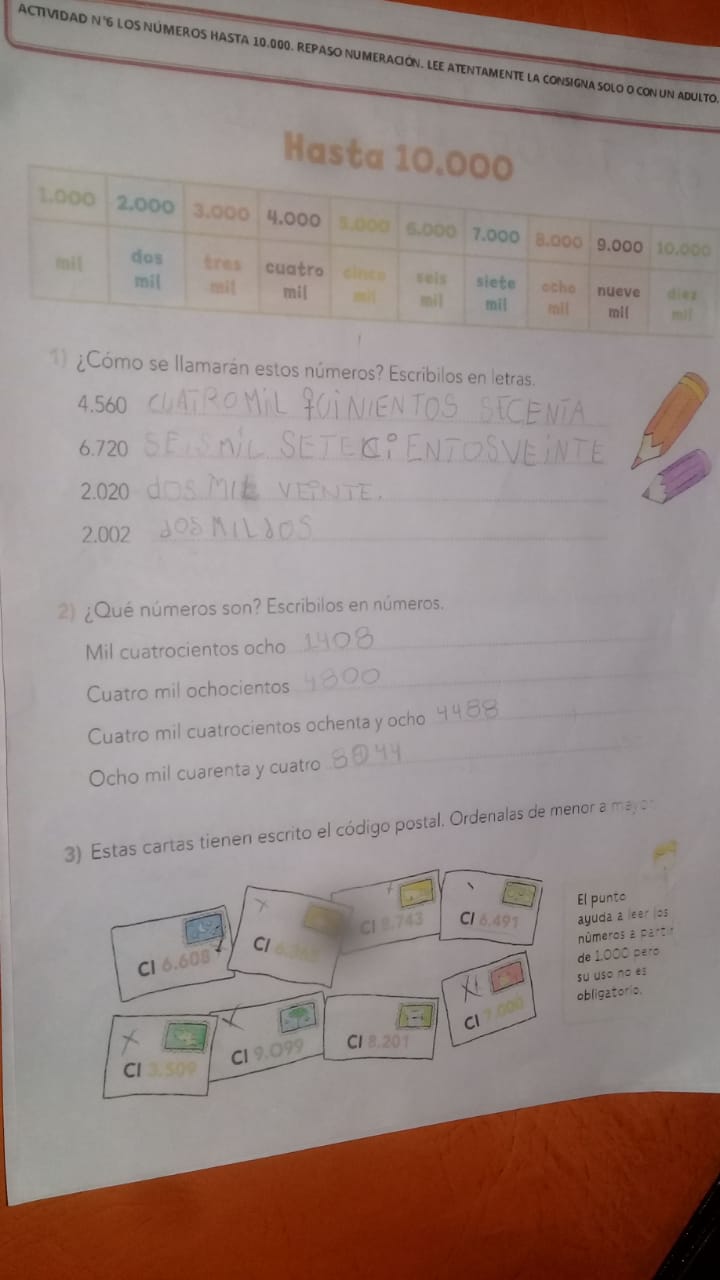 ACTIVIDAD N°6 LOS NÚMEROS HASTA 10.000. REPASO NUMERACIÓN. LEE ATENTAMENTE LA CONSIGNA SOLO O CON UN ADULTO.
Hasta 10.000
1.000 2.000 3.000 4.000 5.000 6.000 7.000 8.000 9.000 10.000
mil dos mil tres mil cuatro mil cinco mil seis mil siete mil ocho mil nueve mil diez mil
1) ¿Cómo se llamarán estos números? Escribilos en letras.
4.560 CUATRO MIL QUINIENTOS SECENTA
6.720 SEIS MIL SETECIENTOSVEINTE
2.020 dOS MIL VEINTE.
2.002 dOS MIL dOS
2) ¿Qué números son? Escribilos en números.
Mil cuatrocientos ocho 1408
Cuatro mil ochocientos 4800
Cuatro mil cuatrocientos ochenta y ocho 4488
Ocho mil cuarenta y cuatro 8044
3) Estas cartas tienen escrito el código postal. Ordenalas de menor a mayor.
CI 6.608
CI
CI 8.743
CI 6.491
CI 3.509
CI 9.099
CI 8.201
CI 7.000
El punto
ayuda a leer los
números a partir
de 1.000 pero
su uso no es
obligatorio.